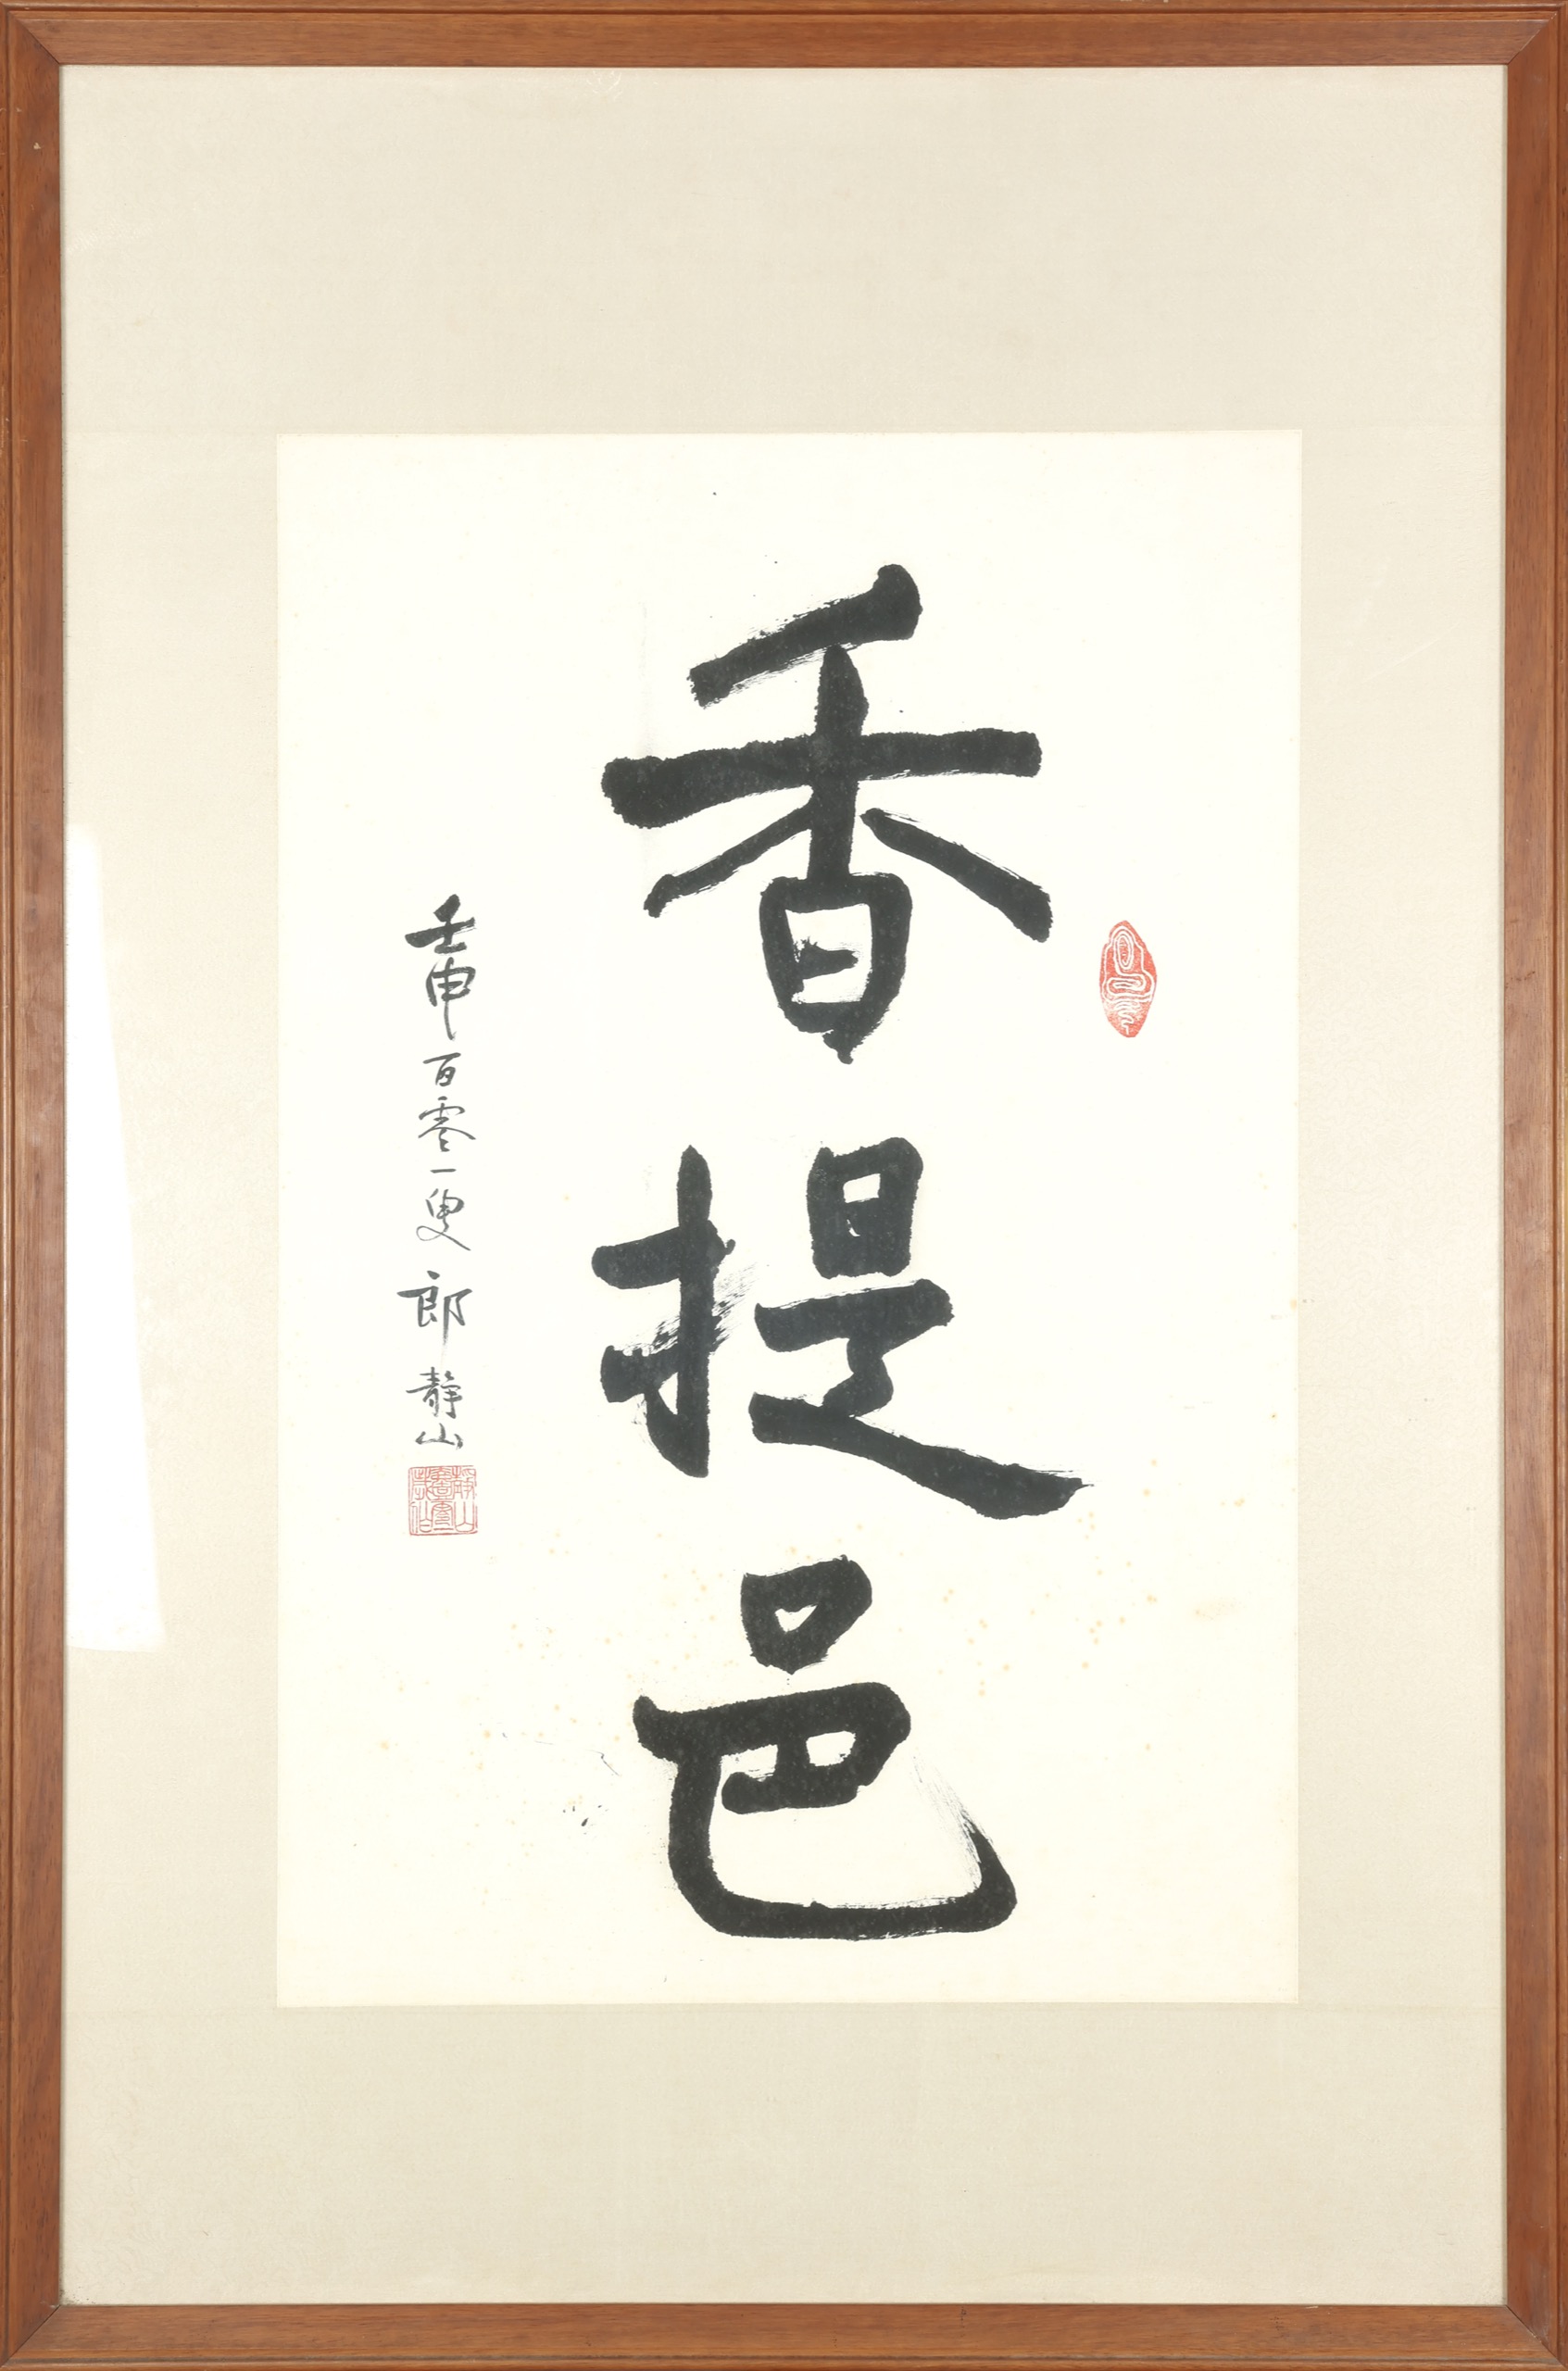 香提邑
壬申百零一叟郎静山